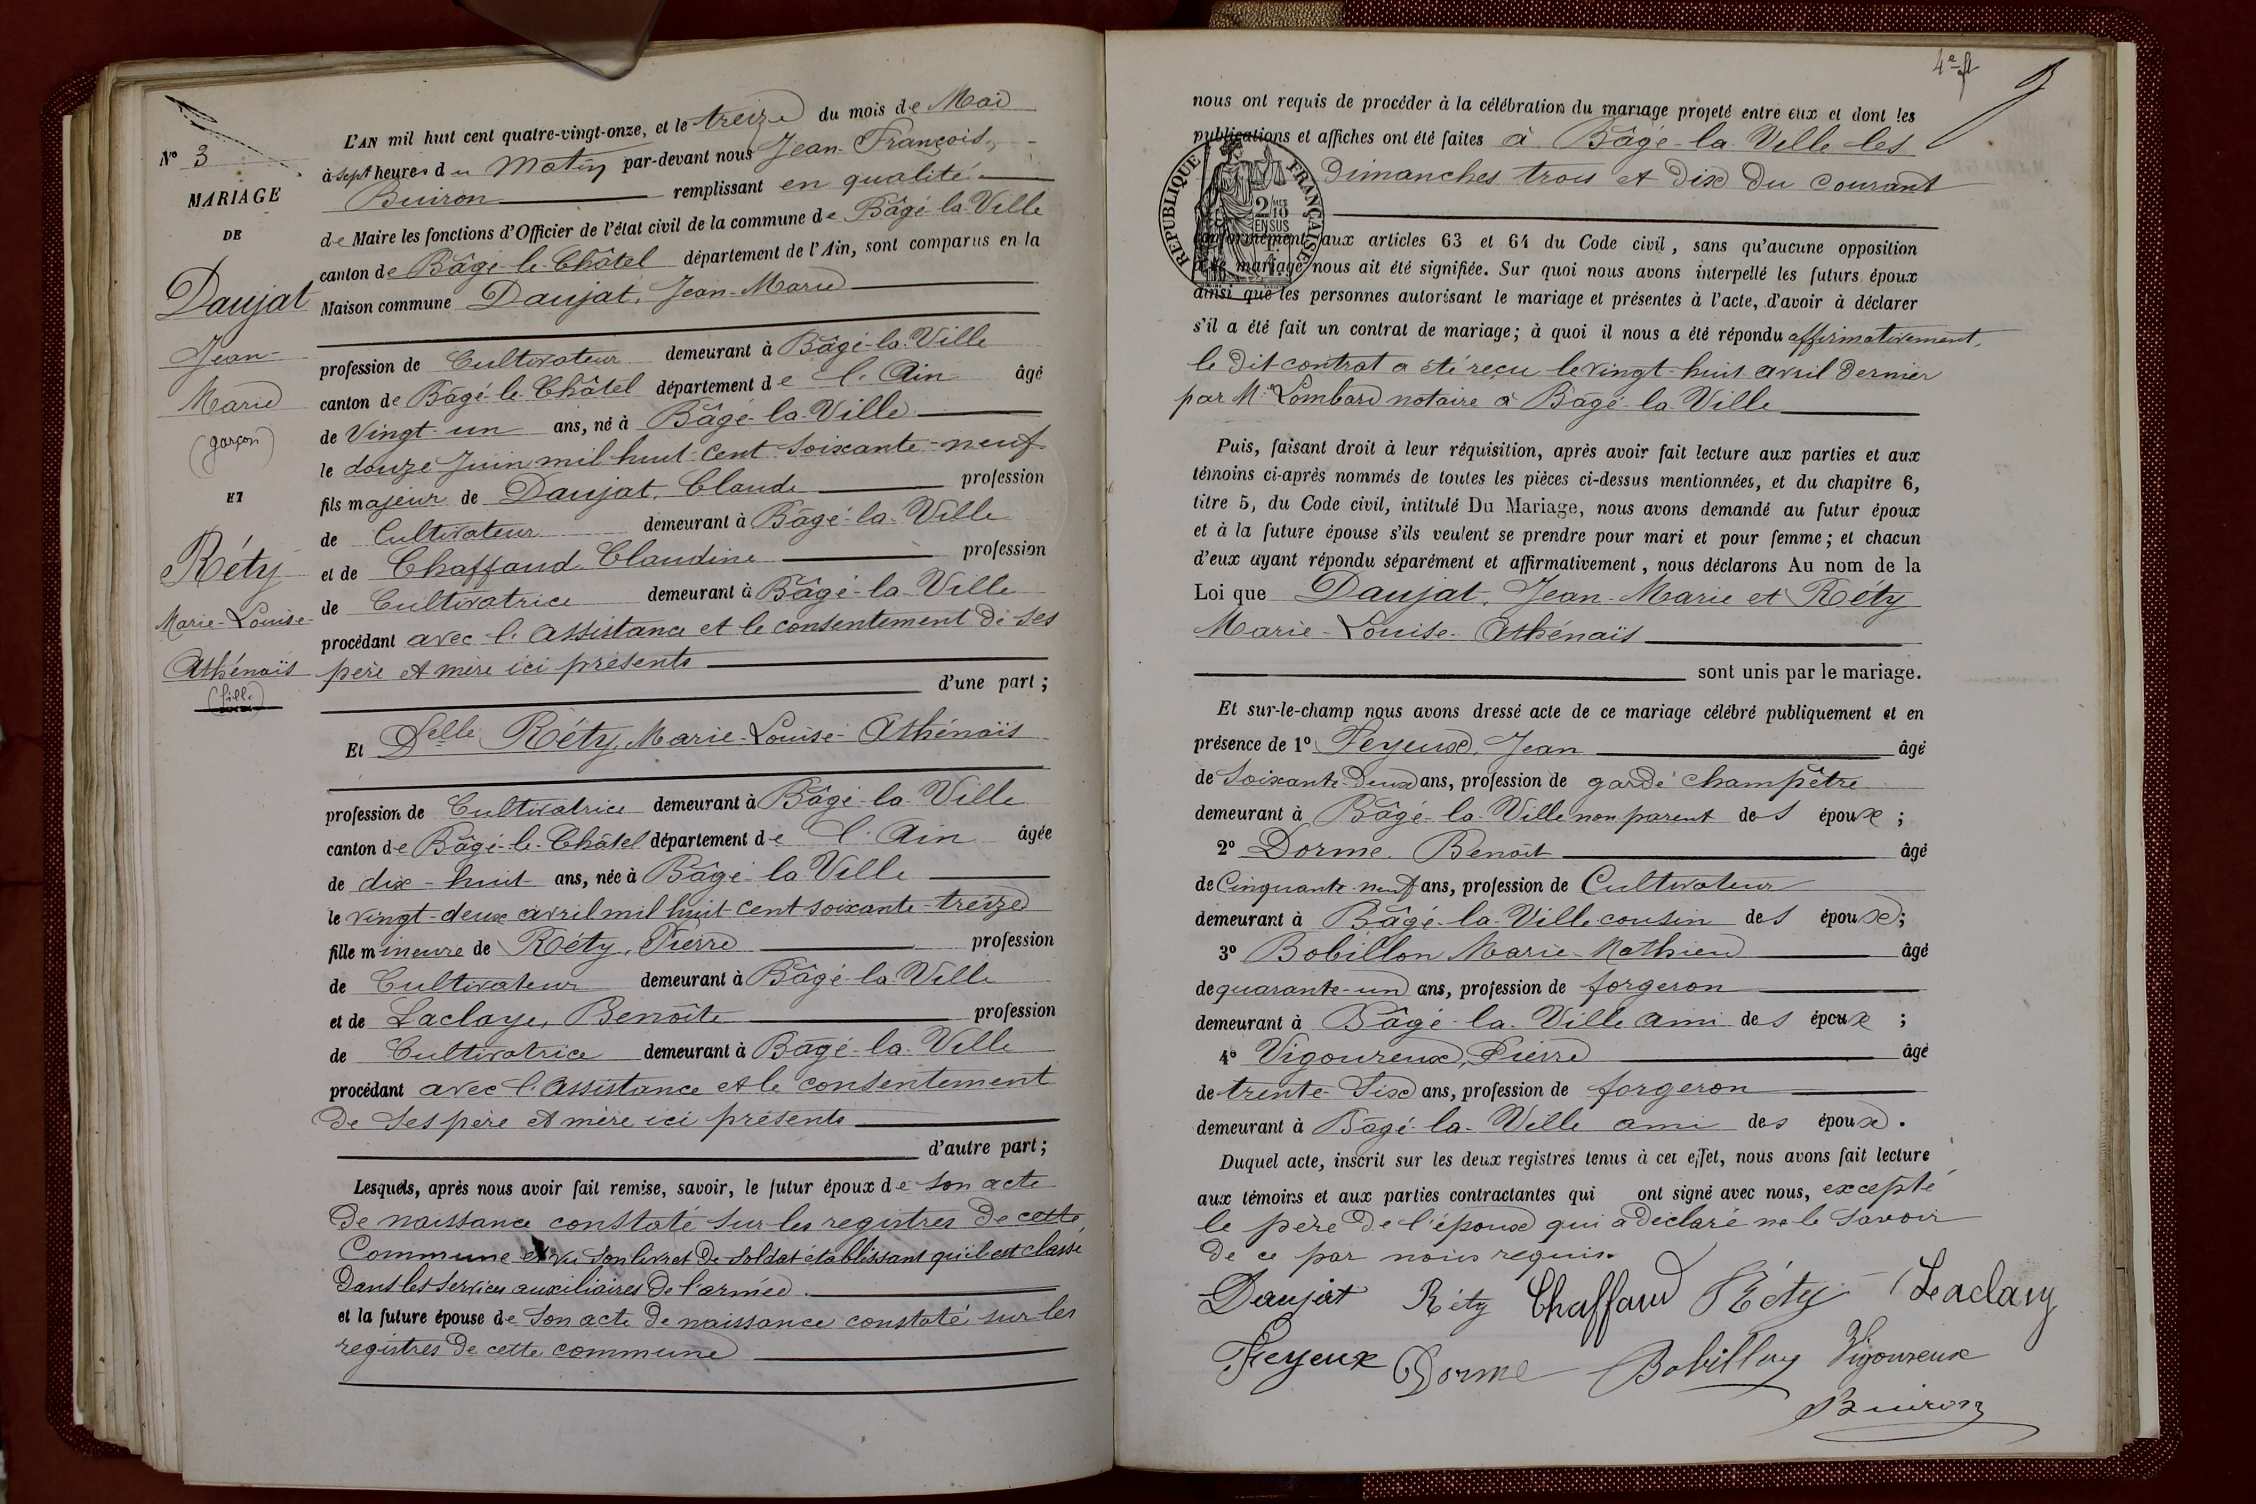 N° 3
MARIAGE
DE
Daujat
Jean-
Marie
(garçon)
ET
Réty
Marie-Louise-
Athénaïs
(fille)
L'AN mil huit cent quatre-vingt-onze, et le treize du mois de Mai
à sept heures du Matin par-devant nous Jean-François
Buiron remplissant en qualité
de Maire les fonctions d'Officier de l'état civil de la commune de Bâgé-la-Ville
canton de Bâgé-le-Châtel département de l'Ain, sont comparus en la
Maison commune Daujat, Jean-Marie
profession de Cultivateur demeurant à Bâgé-la-Ville
canton de Bâgé-le-Châtel département de l'Ain âgé
de Vingt-un ans, né à Bâgé-la-Ville
le douze Juin mil huit cent soixante-neuf
fils majeur de Daujat, Claude profession
de Cultivateur demeurant à Bâgé-la-Ville
et de Chaffaud Claudine profession
de Cultivatrice demeurant à Bâgé-la-Ville
procédant avec l'assistance et le consentement de ses
père et mère ici présents
d'une part ;
Et Delle Réty, Marie-Louise-Athénaïs
profession de Cultivatrice demeurant à Bâgé-la-Ville
canton de Bâgé-le-Châtel département de l'Ain âgée
de dix-huit ans, née à Bâgé-la-Ville
le vingt-deux avril mil huit cent soixante-treize
fille mineure de Réty, Pierre profession
de Cultivateur demeurant à Bâgé-la-Ville
et de Laclaye, Benoîte profession
de Cultivatrice demeurant à Bâgé-la-Ville
procédant avec l'assistance et le consentement
de ses père et mère ici présents
d'autre part ;
Lesquels, après nous avoir fait remise, savoir, le futur époux de son acte
de naissance constaté sur les registres de cette
Commune et vu son livret de soldat établissant qu'il est classé
dans les services auxiliaires de l'armée.
et la future épouse de son acte de naissance constaté sur les
registres de cette commune
4e ft
nous ont requis de procéder à la célébration du mariage projeté entre eux et dont les
publications et affiches ont été faites à Bâgé-la-Ville les
dimanches trois et dix du courant
REPUBLIQUE FRANÇAISE
2/10 EN SUS
conformément aux articles 63 et 64 du Code civil, sans qu'aucune opposition
mariage nous ait été signifiée. Sur quoi nous avons interpellé les futurs époux
ainsi que les personnes autorisant le mariage et présentes à l'acte, d'avoir à déclarer
s'il a été fait un contrat de mariage ; à quoi il nous a été répondu affirmativement,
le dit contrat a été reçu le vingt-huit avril dernier
par Me Lombard notaire à Bâgé-la-Ville
Puis, faisant droit à leur réquisition, après avoir fait lecture aux parties et aux
témoins ci-après nommés de toutes les pièces ci-dessus mentionnées, et du chapitre 6,
titre 5, du Code civil, intitulé Du Mariage, nous avons demandé au futur époux
et à la future épouse s'ils veulent se prendre pour mari et pour femme ; et chacun
d'eux ayant répondu séparément et affirmativement, nous déclarons Au nom de la
Loi que Daujat, Jean-Marie et Réty
Marie-Louise-Athénaïs
sont unis par le mariage.
Et sur-le-champ nous avons dressé acte de ce mariage célébré publiquement et en
présence de 1° Feyeux, Jean âgé
de soixante-deux ans, profession de garde champêtre
demeurant à Bâgé-la-Ville non parent des époux ;
2° Dorme Benoît âgé
de Cinquante-neuf ans, profession de Cultivateur
demeurant à Bâgé-la-Ville cousin des époux ;
3° Bobillon Marie-Mathieu âgé
de quarante-un ans, profession de forgeron
demeurant à Bâgé-la-Ville ami des époux ;
4° Vigoureux, Pierre âgé
de trente-six ans, profession de forgeron
demeurant à Bâgé-la-Ville ami des époux.
Duquel acte, inscrit sur les deux registres tenus à cet effet, nous avons fait lecture
aux témoins et aux parties contractantes qui ont signé avec nous, excepté
le père de l'époux qui a déclaré ne le savoir
de ce par nous requis.
Daujat Réty Chaffaud Réty Leaclay
Feyeux Dorme Bobillon Vigoureux
Buiron